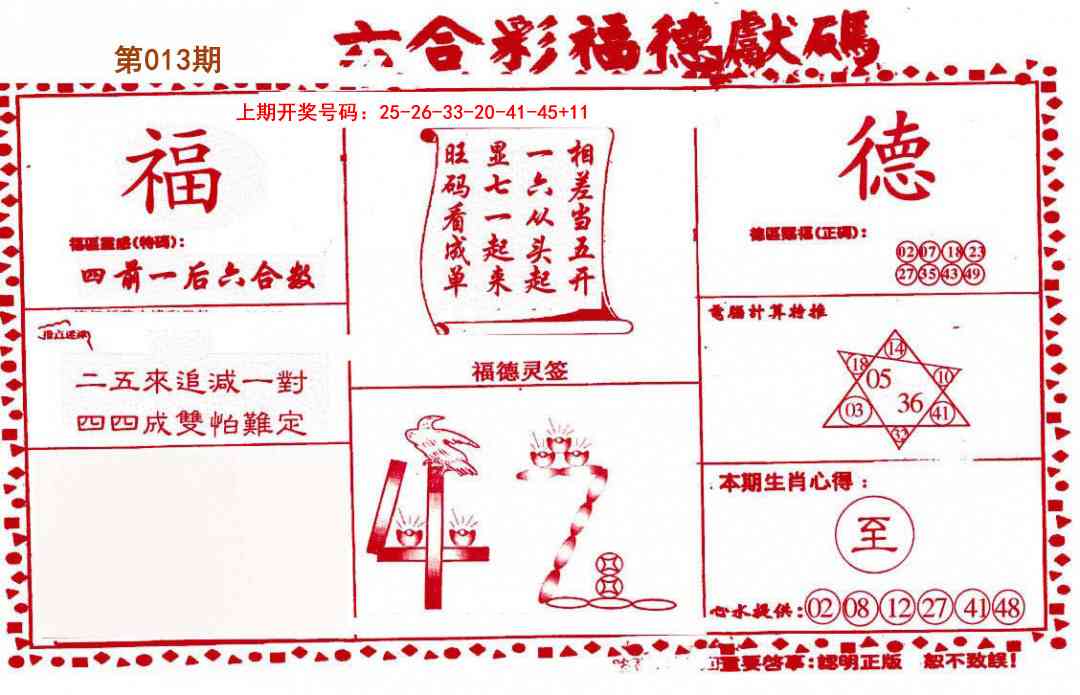 六合彩福德獻碼
第013期
上期开奖号码：25-26-33-20-41-45+11
福
福區靈感(特碼)：
四前一后六合数
二五來追减一對
四四成雙怕難定
相差当五开
一六从头起
显七一起来
旺码看成单
福德灵签
42
德
德區賜福(正碼)：
02 07 18 23
27 35 43 49
電腦計算特推
14
18 05 10
03 36 41
33
本期生肖心得：
至
心水提供：02 08 12 27 41 48
重要啓事：認明正版 恕不致誤！